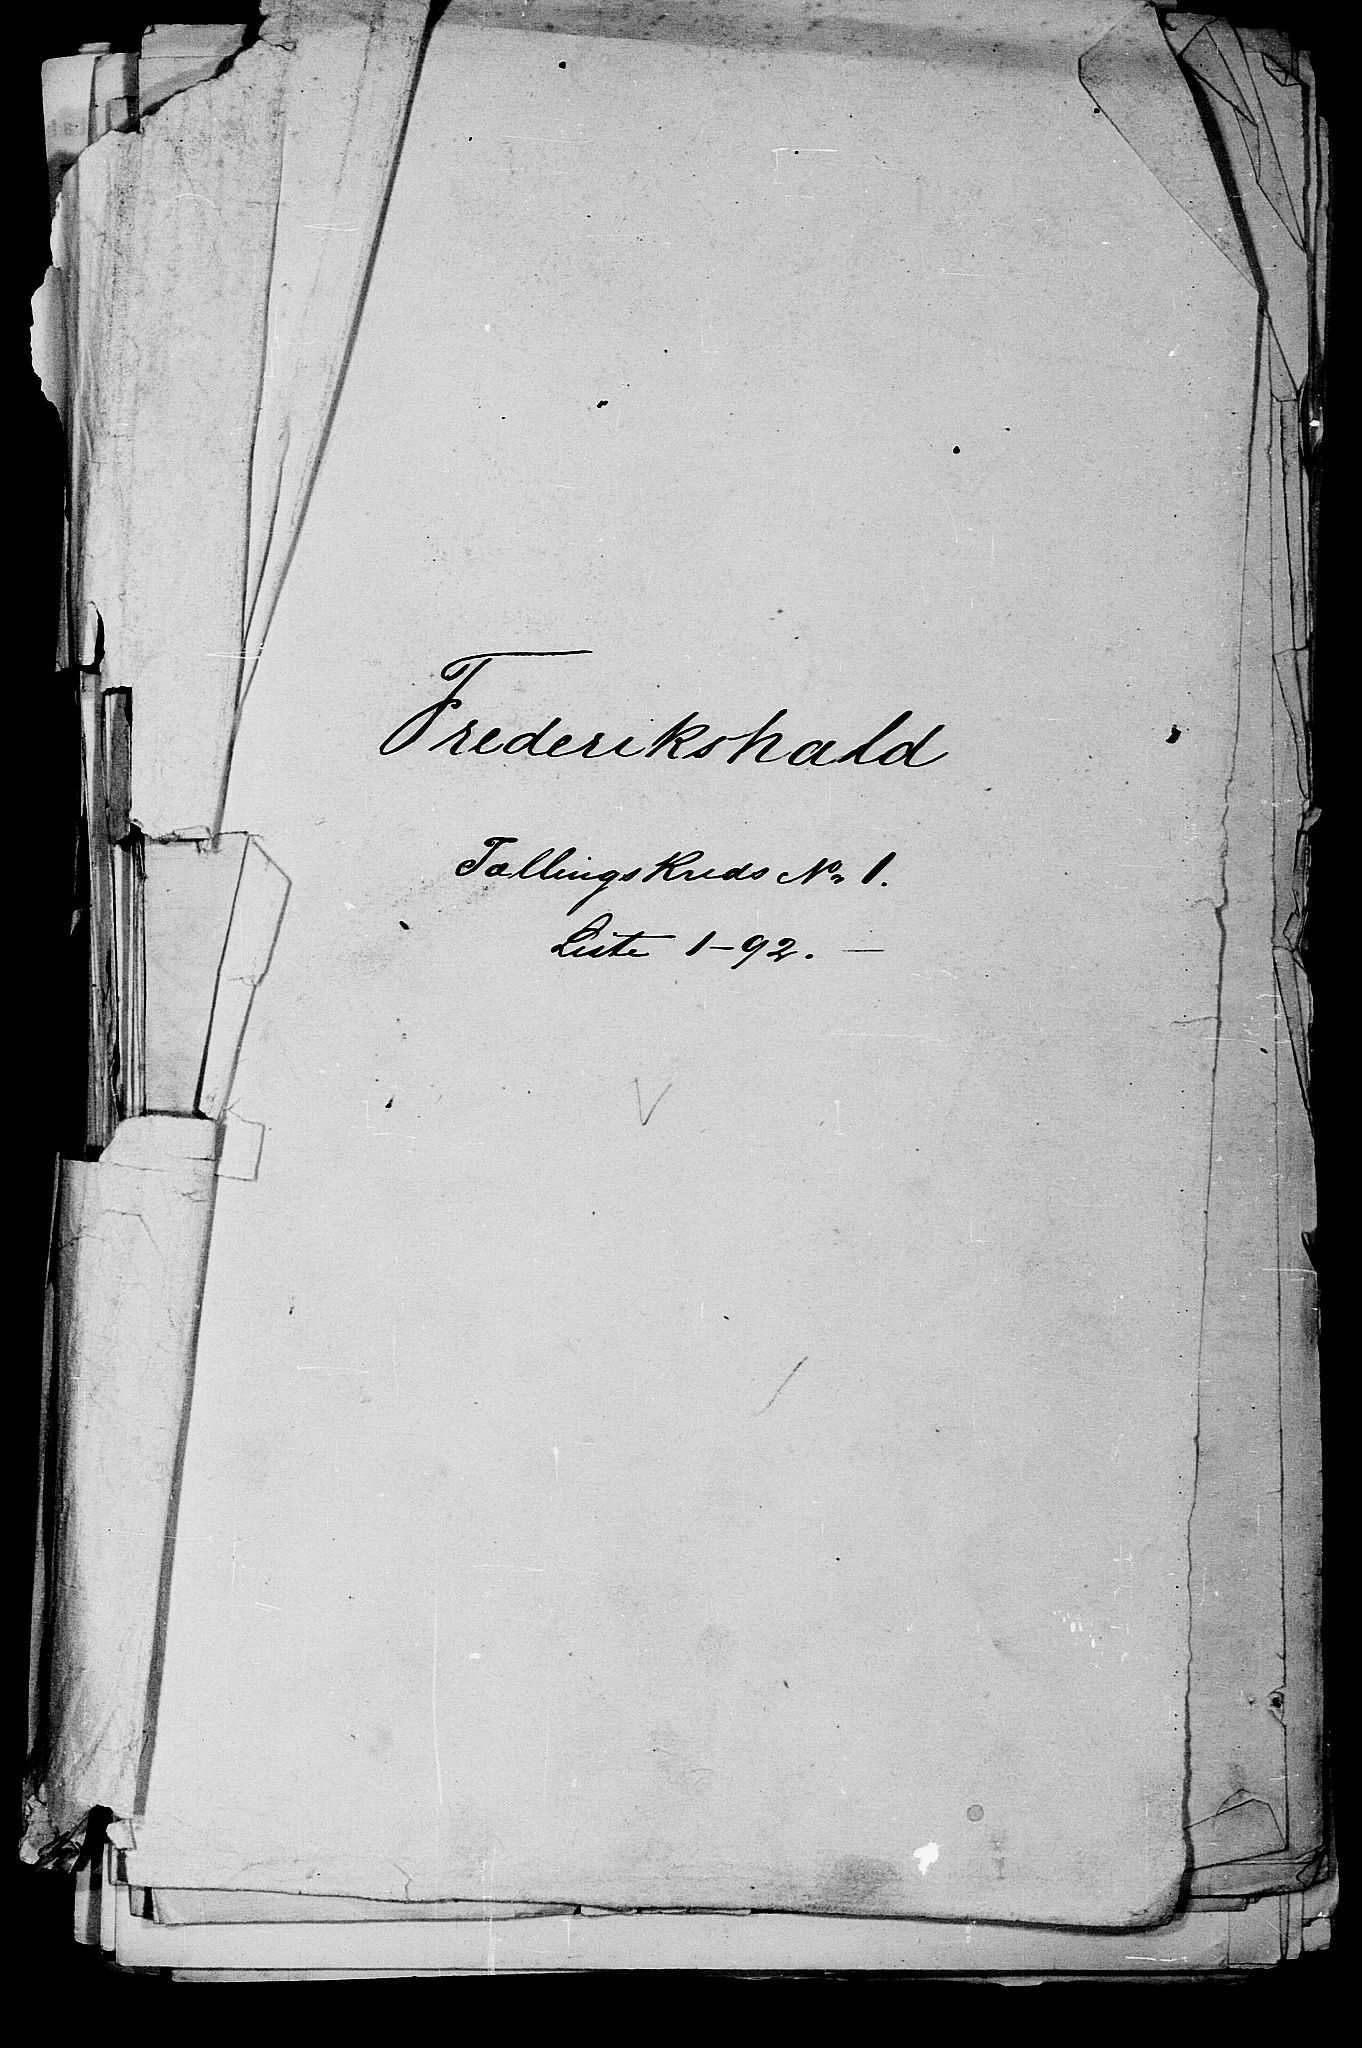 Frederikshald
Tællingskreds No 1.
Liste 1-92. —